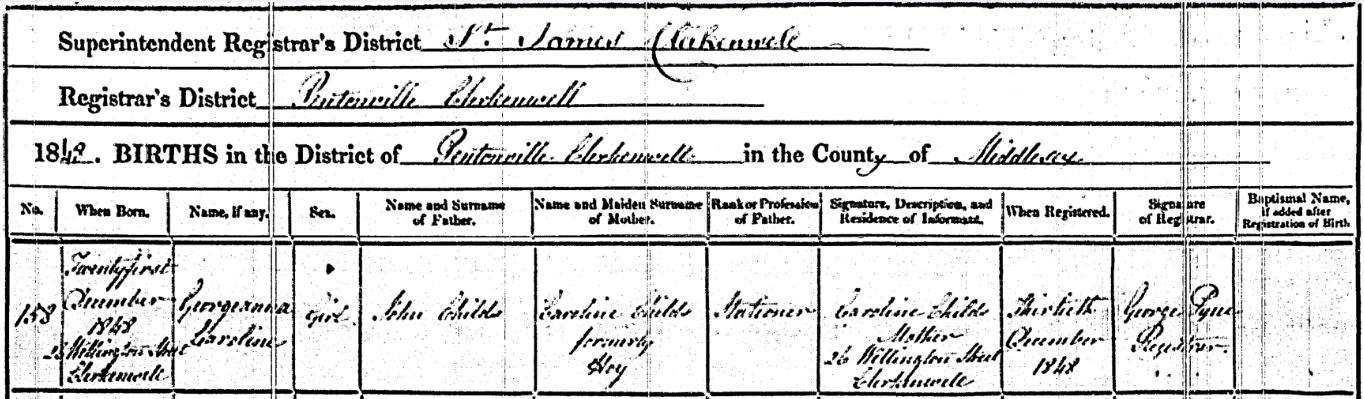 Superintendent Registrar's District St. James Clerkenwell
Registrar's District Pentonville Clerkenwell
1848. BIRTHS in the District of Pentonville Clerkenwell in the County of Middlesex
No. When Born. Name, if any. Sex. Name and Surname of Father. Name and Maiden Surname of Mother. Rank or Profession of Father. Signature, Description, and Residence of Informant. When Registered. Signature of Registrar. Baptismal Name, if added after Registration of Birth.
158
Twenty first
December
1848
26 Wellington Street
Clerkenwell
Georgeanna
Caroline
Girl
John Childs
Caroline Childs
formerly
Hoy
Stationer
Caroline Childs
Mother
26 Wellington Street
Clerkenwell
Thirtieth
December
1848
George Pyne
Registrar.